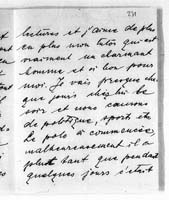 231
lectures et j'aime de plus
en plus mon tuteur qui est
vraiment un charmant
homme et si bon pour
moi. Je vais presque cha-
que jours chez lui le
soir et nous causons
de politique, sports etc.
Le polo a commencé
malheureusement il a
plut tant que pendant
quelques jours c'était